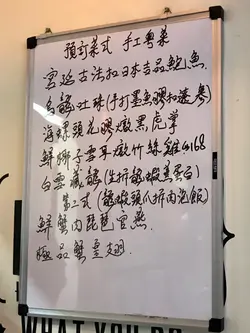 預訂菜式 手工粵菜
宮廷古法扣日本吉品鮑魚
龍吐珠(手打墨魚膠扣遼參)
海螺頭花膠燉黑虎掌
鮮獅子雲耳燉竹絲雞$168
白雲藏龍(生拆龍蝦蒸蛋白)
第二式(龍蝦頭爪拆肉泡飯)
鮮蟹肉琵琶官燕
極品蟹皇翅
WHAT YOU